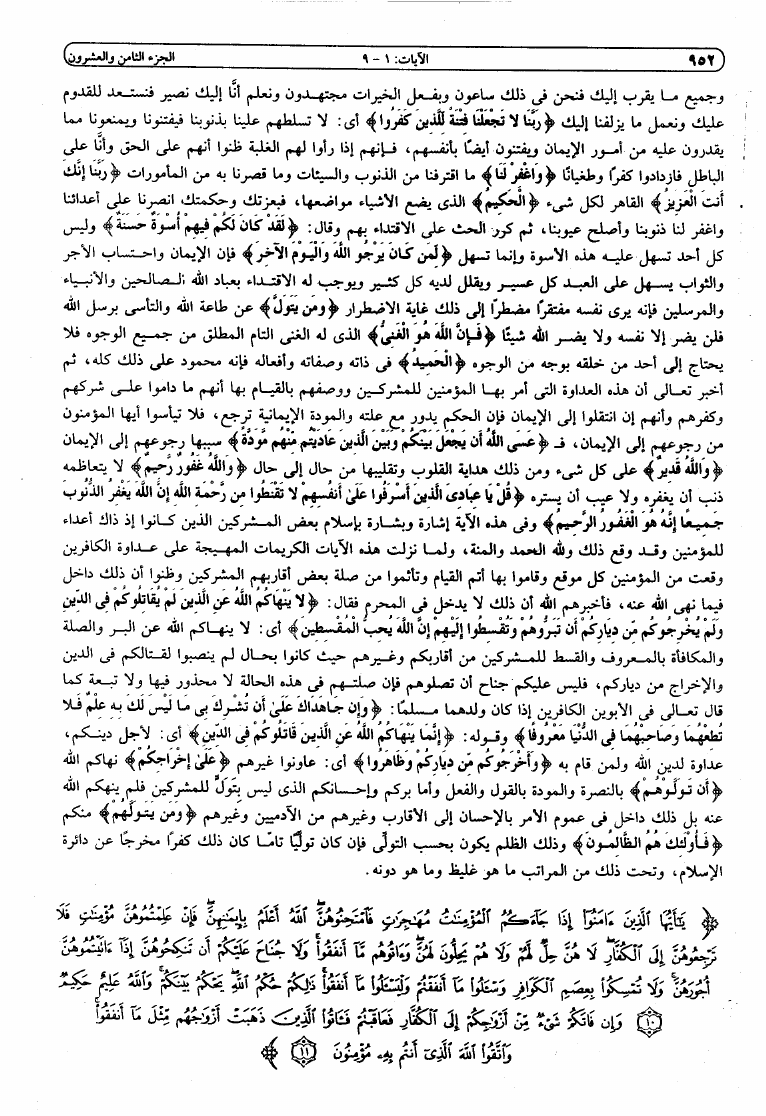 ٩٥٢ الآيات: ١ - ٩ الجزء الثامن والعشرون
وجميع ما يقرب إليك فنحن فى ذلك ساعون وبفعل الخيرات مجتهدون ونعلم أنَّا إليك نصير فنستعد للقدوم
عليك ونعمل ما يزلفنا إليك ﴿رَبَّنَا لا تَجْعَلْنَا فِتْنَةً لِّلَّذِينَ كَفَرُوا﴾ أى: لا تسلطهم علينا بذنوبنا فيفتنونا ويمنعونا مما
يقدرون عليه من أمور الإيمان ويفتنون أيضًا بأنفسهم، فإنهم إذا رأوا لهم الغلبة ظنوا أنهم على الحق وأنَّا على
الباطل فازدادوا كفرًا وطغيانًا ﴿وَاغْفِرْ لَنَا﴾ ما اقترفنا من الذنوب والسيئات وما قصرنا به من المأمورات ﴿رَبَّنَا إِنَّكَ
أَنتَ الْعَزِيزُ﴾ القاهر لكل شىء ﴿الْحَكِيمُ﴾ الذى يضع الأشياء مواضعها، فبعزتك وحكمتك انصرنا على أعدائنا
واغفر لنا ذنوبنا وأصلح عيوبنا، ثم كرر الحث على الاقتداء بهم وقال: ﴿لَقَدْ كَانَ لَكُمْ فِيهِمْ أُسْوَةٌ حَسَنَةٌ﴾ وليس
كل أحد تسهل عليه هذه الأسوة وإنما تسهل ﴿لِمَن كَانَ يَرْجُو اللَّهَ وَالْيَوْمَ الآخِرَ﴾ فإن الإيمان واحتساب الأجر
والثواب يسهل على العبد كل عسير ويقلل لديه كل كثير ويوجب له الاقتداء بعباد الله الصالحين والأنبياء
والمرسلين فإنه يرى نفسه مفتقرًا مضطرًا إلى ذلك غاية الاضطرار ﴿وَمَن يَتَوَلَّ﴾ عن طاعة الله والتأسى برسل الله
فلن يضر إلا نفسه ولا يضر الله شيئًا ﴿فَإِنَّ اللَّهَ هُوَ الْغَنِيُّ﴾ الذى له الغنى التام المطلق من جميع الوجوه فلا
يحتاج إلى أحد من خلقه بوجه من الوجوه ﴿الْحَمِيدُ﴾ فى ذاته وصفاته وأفعاله فإنه محمود على ذلك كله، ثم
أخبر تعالى أن هذه العداوة التى أمر بها المؤمنين للمشركين ووصفهم بالقيام بها أنهم ما داموا على شركهم
وكفرهم وأنهم إن انتقلوا إلى الإيمان فإن الحكم يدور مع علته والمودة الإيمانية ترجع، فلا تيأسوا أيها المؤمنون
من رجوعهم إلى الإيمان، فـ ﴿عَسَى اللَّهُ أَن يَجْعَلَ بَيْنَكُمْ وَبَيْنَ الَّذِينَ عَادَيْتُم مِّنْهُم مَّوَدَّةً﴾ سببها رجوعهم إلى الإيمان
﴿وَاللَّهُ قَدِيرٌ﴾ على كل شىء ومن ذلك هداية القلوب وتقليبها من حال إلى حال ﴿وَاللَّهُ غَفُورٌ رَّحِيمٌ﴾ لا يتعاظمه
ذنب أن يغفره ولا عيب أن يستره ﴿قُلْ يَا عِبَادِىَ الَّذِينَ أَسْرَفُوا عَلَىٰ أَنفُسِهِمْ لا تَقْنَطُوا مِن رَّحْمَةِ اللَّهِ إِنَّ اللَّهَ يَغْفِرُ الذُّنُوبَ
جَمِيعًا إِنَّهُ هُوَ الْغَفُورُ الرَّحِيمُ﴾ وفى هذه الآية إشارة وبشارة بإسلام بعض المشركين الذين كانوا إذ ذاك أعداء
للمؤمنين وقد وقع ذلك ولله الحمد والمنة، ولما نزلت هذه الآيات الكريمات المهيجة على عداوة الكافرين
وقعت من المؤمنين كل موقع وقاموا بها أتم القيام وتأثموا من صلة بعض أقاربهم المشركين وظنوا أن ذلك داخل
فيما نهى الله عنه، فأخبرهم الله أن ذلك لا يدخل فى المحرم فقال: ﴿لا يَنْهَاكُمُ اللَّهُ عَنِ الَّذِينَ لَمْ يُقَاتِلُوكُمْ فِى الدِّينِ
وَلَمْ يُخْرِجُوكُم مِّن دِيَارِكُمْ أَن تَبَرُّوهُمْ وَتُقْسِطُوا إِلَيْهِمْ إِنَّ اللَّهَ يُحِبُّ الْمُقْسِطِينَ﴾ أى: لا ينهاكم الله عن البر والصلة
والمكافأة بالمعروف والقسط للمشركين من أقاربكم وغيرهم حيث كانوا بحال لم ينصبوا لقتالكم فى الدين
والإخراج من دياركم، فليس عليكم جناح أن تصلوهم فإن صلتهم فى هذه الحالة لا محذور فيها ولا تبعة كما
قال تعالى فى الأبوين الكافرين إذا كان ولدهما مسلمًا: ﴿وَإِن جَاهَدَاكَ عَلَىٰ أَن تُشْرِكَ بِى مَا لَيْسَ لَكَ بِهِ عِلْمٌ فَلا
تُطِعْهُمَا وَصَاحِبْهُمَا فِى الدُّنْيَا مَعْرُوفًا﴾ وقوله: ﴿إِنَّمَا يَنْهَاكُمُ اللَّهُ عَنِ الَّذِينَ قَاتَلُوكُمْ فِى الدِّينِ﴾ أى: لأجل دينكم،
عداوة لدين الله ولمن قام به ﴿وَأَخْرَجُوكُم مِّن دِيَارِكُمْ وَظَاهَرُوا﴾ أى: عاونوا غيرهم ﴿عَلَىٰ إِخْرَاجِكُمْ﴾ نهاكم الله
﴿أَن تَوَلَّوْهُمْ﴾ بالنصرة والمودة بالقول والفعل وأما بركم وإحسانكم الذى ليس بتَوَلٍّ للمشركين فلم ينهكم الله
عنه بل ذلك داخل فى عموم الأمر بالإحسان إلى الأقارب وغيرهم من الآدميين وغيرهم ﴿وَمَن يَتَوَلَّهُمْ﴾ منكم
﴿فَأُوْلَئِكَ هُمُ الظَّالِمُونَ﴾ وذلك الظلم يكون بحسب التولِّى فإن كان تولِّيًا تامًا كان ذلك كفرًا مخرجًا عن دائرة
الإسلام، وتحت ذلك من المراتب ما هو غليظ وما هو دونه.
﴿ يَٰٓأَيُّهَا ٱلَّذِينَ ءَامَنُوٓا۟ إِذَا جَآءَكُمُ ٱلْمُؤْمِنَٰتُ مُهَٰجِرَٰتٍ فَٱمْتَحِنُوهُنَّ ۖ ٱللَّهُ أَعْلَمُ بِإِيمَٰنِهِنَّ ۖ فَإِنْ عَلِمْتُمُوهُنَّ مُؤْمِنَٰتٍ فَلَا
تَرْجِعُوهُنَّ إِلَى ٱلْكُفَّارِ ۖ لَا هُنَّ حِلٌّ لَّهُمْ وَلَا هُمْ يَحِلُّونَ لَهُنَّ ۖ وَءَاتُوهُم مَّآ أَنفَقُوا۟ ۚ وَلَا جُنَاحَ عَلَيْكُمْ أَن تَنكِحُوهُنَّ إِذَآ ءَاتَيْتُمُوهُنَّ
أُجُورَهُنَّ ۚ وَلَا تُمْسِكُوا۟ بِعِصَمِ ٱلْكَوَافِرِ وَسْـَٔلُوا۟ مَآ أَنفَقْتُمْ وَلْيَسْـَٔلُوا۟ مَآ أَنفَقُوا۟ ۚ ذَٰلِكُمْ حُكْمُ ٱللَّهِ ۖ يَحْكُمُ بَيْنَكُمْ ۚ وَٱللَّهُ عَلِيمٌ حَكِيمٌ
١٠ وَإِن فَاتَكُمْ شَىْءٌ مِّنْ أَزْوَٰجِكُمْ إِلَى ٱلْكُفَّارِ فَعَاقَبْتُمْ فَـَٔاتُوا۟ ٱلَّذِينَ ذَهَبَتْ أَزْوَٰجُهُم مِّثْلَ مَآ أَنفَقُوا۟ ۚ
وَٱتَّقُوا۟ ٱللَّهَ ٱلَّذِىٓ أَنتُم بِهِۦ مُؤْمِنُونَ ١١ ﴾